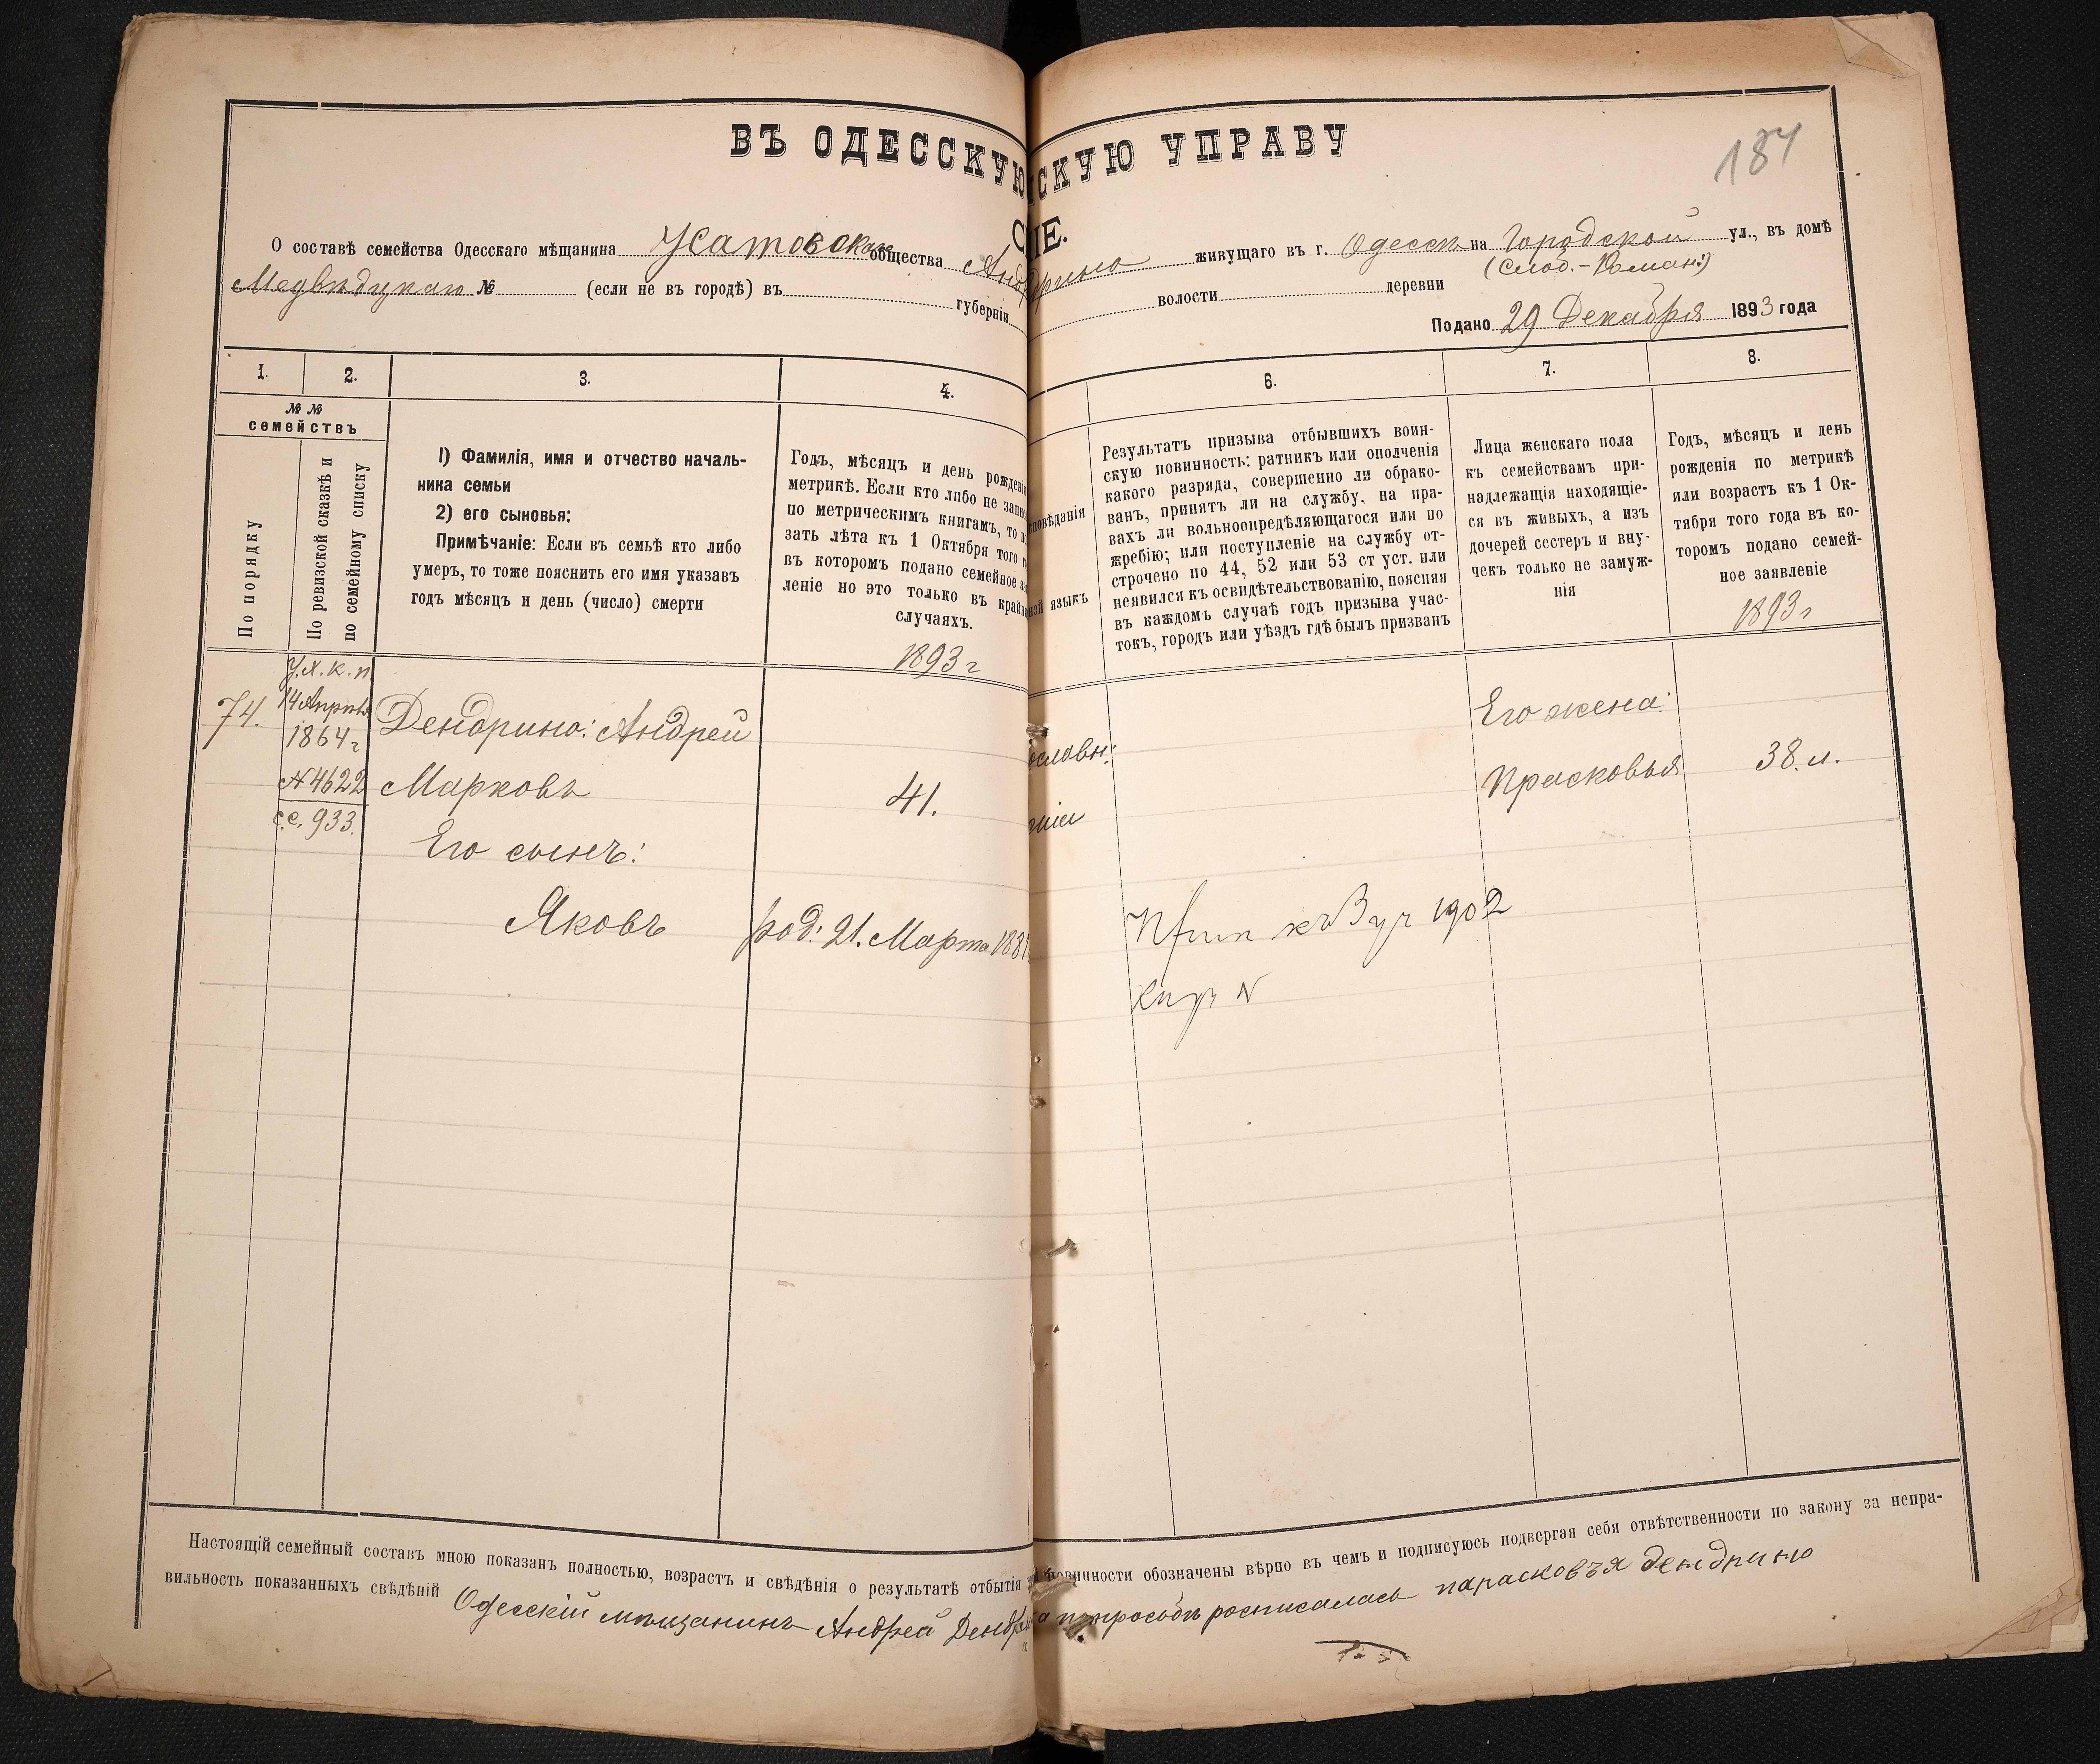 ВЪ ОДЕССКУЮ СКУЮ УПРАВУ
184
О составѣ семейства Одесскаго мѣщанина Усатовскаго общества Андр дрино живущаго въ г. Одессѣ на Городской ул., въ домѣ
(Слоб.-Роман:)
Медвѣдицкаго № (если не въ городѣ) въ губерніи волости деревни
Подано 29 Декабря 1893 года
1. 2. 3. 4. 6. 7. 8.
№ №
семействъ
По порядку
По ревизской сказкѣ и
по семейному списку
1) Фамилія, имя и отчество началь-
ника семьи
2) его сыновья:
Примѣчаніе: Если въ семьѣ кто либо
умеръ, то тоже пояснить его имя указавъ
годъ мѣсяцъ и день (число) смерти
Годъ, мѣсяцъ и день рожденія
метрикѣ. Если кто либо не запис
по метрическимъ книгамъ, то по
зать лѣта къ 1 Октября того г
въ которомъ подано семейное за
леніе но это только въ край
случаяхъ.
1893 г
повѣданія
ной языкъ
Результатъ призыва отбывшихъ воин-
скую повинность: ратникъ или ополченія
какого разряда, совершенно ли обрако-
ванъ, принятъ ли на службу, на пра-
вахъ ли вольноопредѣляющагося или по
жребію; или поступленіе на службу от-
строчено по 44, 52 или 53 ст уст. или
неявился къ освидѣтельствованію, поясняя
въ каждомъ случаѣ годъ призыва учас-
токъ, городъ или уѣздъ гдѣ былъ призванъ
Лица женскаго пола
къ семействамъ при-
надлежащія находящіе-
ся въ живыхъ, а изъ
дочерей сестеръ и вну-
чекъ только не замуж-
нія
Годъ, мѣсяцъ и день
рожденія по метрикѣ
или возрастъ къ 1 Ок-
тября того года въ ко-
торомъ подано семей-
ное заявленіе
1893 г
74.
У.Х.К.П.
14 Апрѣля
1864 г
№ 4622
с.с. 933.
Дендрино: Андрей
Марковъ
41.
ославн:
Его жена:
Прасковья
38. л.
Его сынъ:
Яковъ
род: 21. Марта 1881
къ 3 уч 1902
№
Настоящій семейный составъ мною показанъ полностью, возрастъ и свѣдѣнія о результатѣ отбытія повинности обозначены вѣрно въ чемъ и подписуюсь подвергая себя отвѣтственности по закону за непра-
вильность показанныхъ свѣдѣній Одесскій мѣщанинъ Андрей Дендри а по просьбѣ росписалась парасковья дендрино